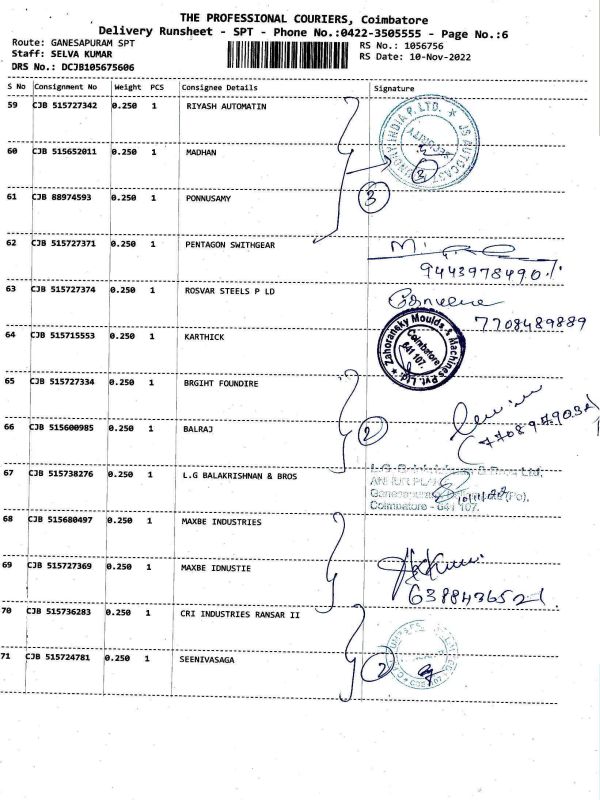 THE PROFESSIONAL COURIERS, Coimbatore
Delivery Runsheet - SPT - Phone No.:0422-3505555 - Page No.:6
Route: GANESAPURAM SPT
Staff: SELVA KUMAR
DRS No.: DCJB105675606
RS No.: 1056756
RS Date: 10-Nov-2022
S No Consignment No Weight PCS Consignee Details Signature
59 CJB 515727342 0.250 1 RIYASH AUTOMATIN
60 CJB 515652011 0.250 1 MADHAN
JS AUTOCAST INDIA P. LTD. SECURITY
3
61 CJB 88974593 0.250 1 PONNUSAMY
3
62 CJB 515727371 0.250 1 PENTAGON SWITHGEAR
9443978490
63 CJB 515727374 0.250 1 ROSVAR STEELS P LD
7708489889
64 CJB 515715553 0.250 1 KARTHICK
Zahoransky Moulds & Machines Pvt. Ltd.
Coimbatore
641 107.
65 CJB 515727334 0.250 1 BRGIHT FOUNDIRE
66 CJB 515600985 0.250 1 BALRAJ
2
67 CJB 515738276 0.250 1 L.G BALAKRISHNAN & BROS
L.G. Balakrishnan & Bros Ltd,
Coimbatore - 641 107.
10/11/22
68 CJB 515680497 0.250 1 MAXBE INDUSTRIES
69 CJB 515727369 0.250 1 MAXBE IDNUSTIE
70 CJB 515736283 0.250 1 CRI INDUSTRIES RANSAR II
71 CJB 515724781 0.250 1 SEENIVASAGA
2